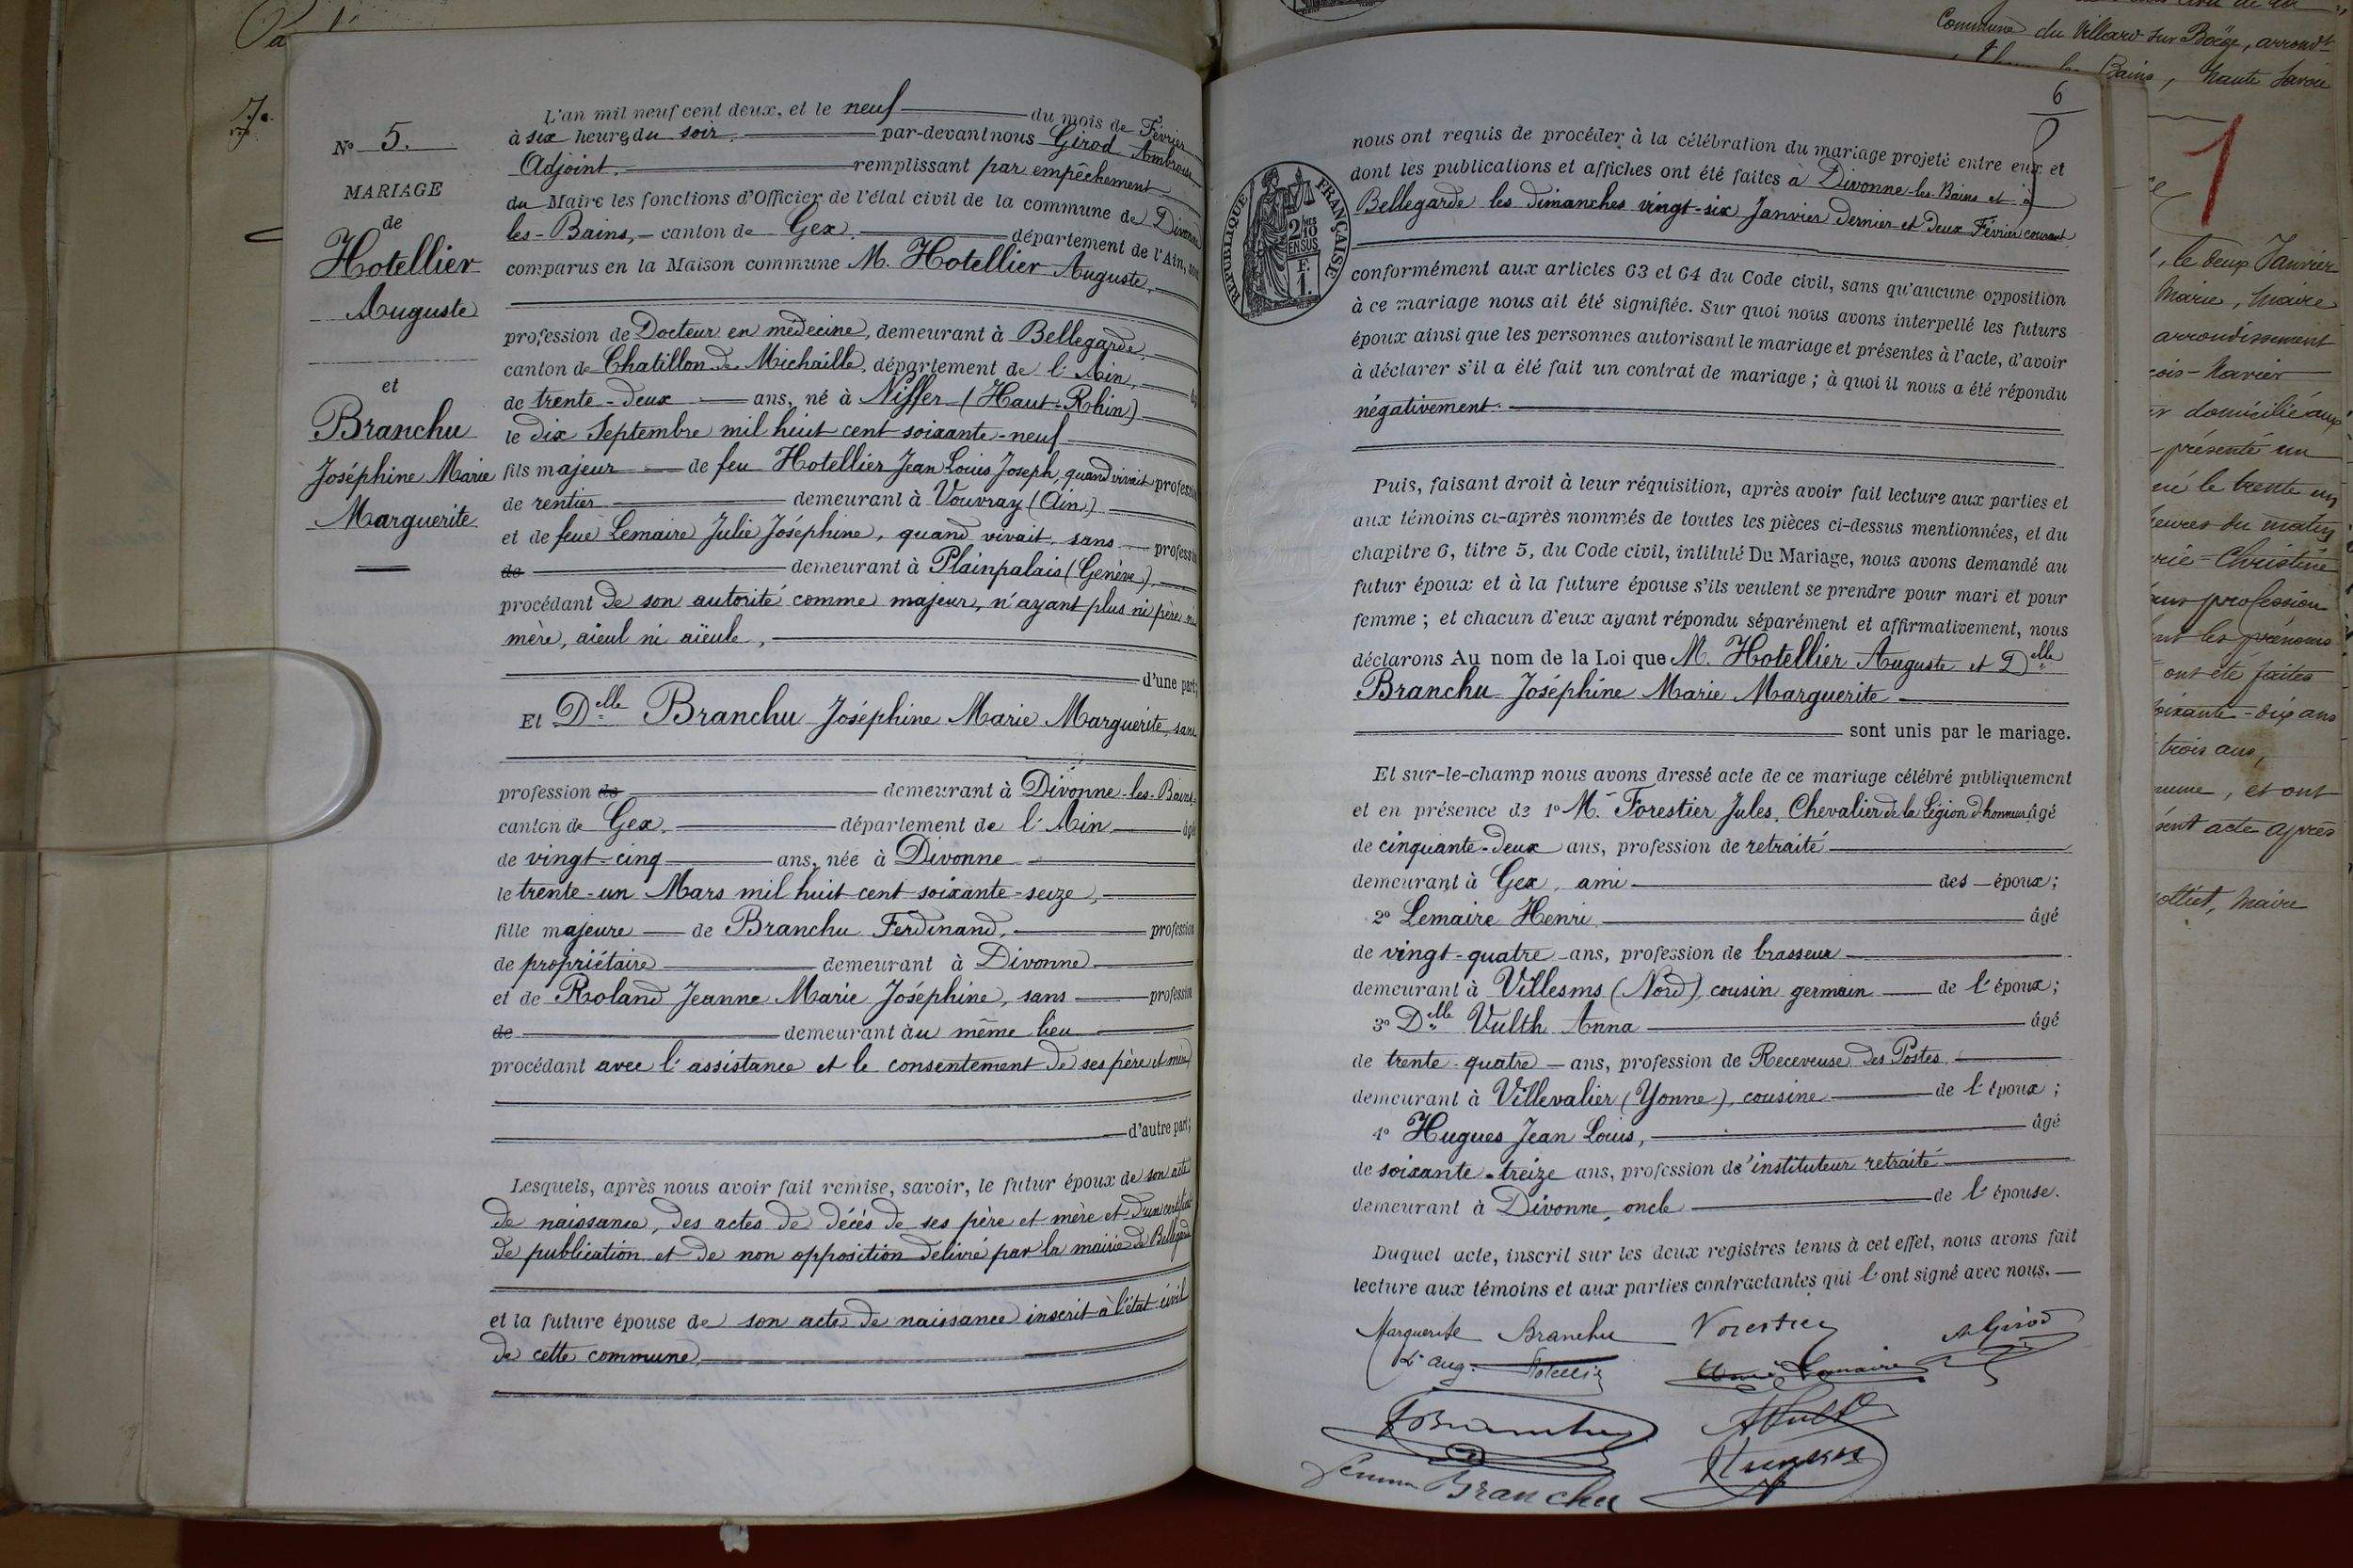 N° 5.
MARIAGE
de
Hotellier
Auguste
et
Branchu
Joséphine Marie
Marguerite
L'an mil neuf cent deux, et le neuf du mois de Février
à six heures du soir, par-devant nous Girod Ambroise
Adjoint, remplissant par empêchement
du Maire les fonctions d'Officier de l'état civil de la commune de Divonne
les-Bains, canton de Gex, département de l'Ain, sont
comparus en la Maison commune M. Hotellier Auguste,
profession de Docteur en médecine, demeurant à Bellegarde,
canton de Chatillon de Michaille, département de l'Ain,
de trente-deux ans, né à Niffer (Haut-Rhin)
le dix Septembre mil huit cent soixante-neuf
fils majeur de feu Hotellier Jean Louis Joseph, quand vivait profession
de rentier demeurant à Vouvray (Ain)
et de feue Lemaire Julie Joséphine, quand vivait, sans profession
de demeurant à Plainpalais (Genève),
procédant de son autorité comme majeur, n'ayant plus ni père ni
mère, aïeul ni aïeule,
d'une part;
Et Delle Branchu Joséphine Marie Marguerite, sans
profession de demeurant à Divonne-les-Bains,
canton de Gex, département de l'Ain âgée
de vingt-cinq ans, née à Divonne
le trente-un Mars mil huit cent soixante-seize,
fille majeure de Branchu Ferdinand, profession
de propriétaire demeurant à Divonne
et de Roland Jeanne Marie Joséphine, sans profession
de demeurant au même lieu
procédant avec l'assistance et le consentement de ses père et mère
d'autre part;
Lesquels, après nous avoir fait remise, savoir, le futur époux de son acte
de naissance, des actes de décés de ses père et mère et d'un certificat
de publication et de non opposition delivré par la mairie de Bellegarde
et la future épouse de son acte de naissance inscrit à l'état civil
de cette commune,
6
nous ont requis de procéder à la célébration du mariage projeté entre eux et
dont les publications et affiches ont été faites à Divonne-les-Bains et à
Bellegarde les dimanches vingt-six Janvier dernier et deux Février courant
RÉPUBLIQUE FRANÇAISE
2/10
EN SUS
F.
1.
conformément aux articles 63 et 64 du Code civil, sans qu'aucune opposition
à ce mariage nous ait été signifiée. Sur quoi nous avons interpellé les futurs
époux ainsi que les personnes autorisant le mariage et présentes à l'acte, d'avoir
à déclarer s'il a été fait un contrat de mariage ; à quoi il nous a été répondu
négativement.
Puis, faisant droit à leur réquisition, après avoir fait lecture aux parties et
aux témoins ci-après nommés de toutes les pièces ci-dessus mentionnées, et du
chapitre 6, titre 5, du Code civil, intitulé Du Mariage, nous avons demandé au
futur époux et à la future épouse s'ils veulent se prendre pour mari et pour
femme ; et chacun d'eux ayant répondu séparément et affirmativement, nous
déclarons Au nom de la Loi que M. Hotellier Auguste et Delle
Branchu Joséphine Marie Marguerite
sont unis par le mariage.
Et sur-le-champ nous avons dressé acte de ce mariage célébré publiquement
et en présence de 1° M. Forestier Jules, Chevalier de la Légion d'honneur âgé
de cinquante-deux ans, profession de retraité
demeurant à Gex, ami des époux;
2° Lemaire Henri, âgé
de vingt-quatre ans, profession de brasseur
demeurant à Villesms (Nord), cousin germain de l'époux;
3° Delle Vulth Anna âgé
de trente-quatre ans, profession de Receveuse des Postes
demeurant à Villevalier (Yonne), cousine de l'époux ;
4° Hugues Jean Louis, âgé
de soixante-treize ans, profession d'instituteur retraité
demeurant à Divonne, oncle de l'épouse.
Duquel acte, inscrit sur les deux registres tenus à cet effet, nous avons fait
lecture aux témoins et aux parties contractantes qui l'ont signé avec nous.
Marguerite Branchu Forestier A. Girod
Dr Aug. Hotellier Lemaire
Branchu
femme Branchu
Commune du Villard sur Boëge, arrondt
Bains, haute Savoie
1
le deux Janvier
Marie, Maire
arrondissement
domicilié aux
présenté un
né le trente un
heures du matin
Christine
profession
les prénoms
ont été faites
soixante-dix ans
trois ans,
et ont
acte après
Maire